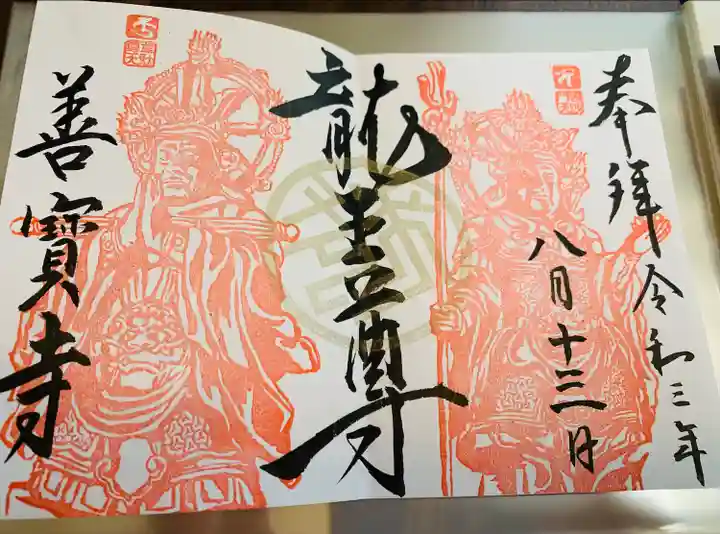 奉拝 令和三年
八月十三日
龍王尊
善寶寺